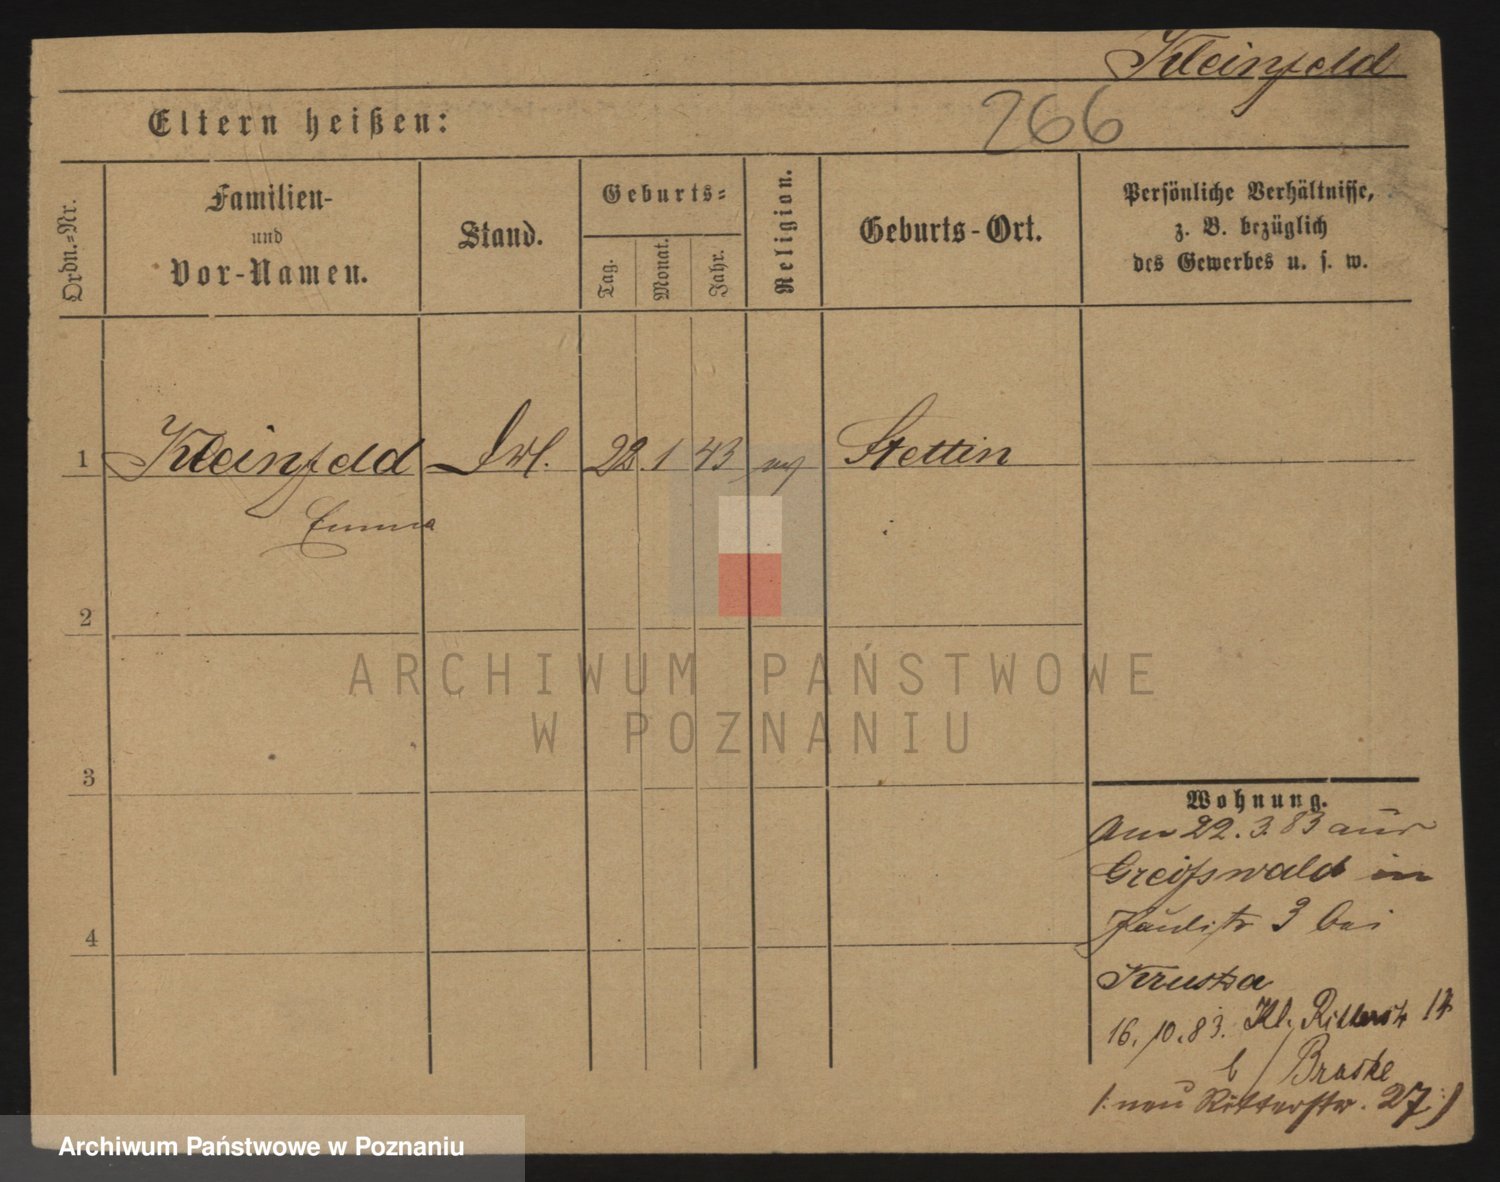 Kleinfeld
Eltern heißen:
266
Ordn.=Nr.
Familien-
und
Vor-Namen.
Stand.
Geburts=
Tag.
Monat.
Jahr.
Religion.
Geburts-Ort.
Persönliche Verhältnisse,
z. B. bezüglich
des Gewerbes u. s. w.
1
Kleinfeld
Frl.
22. 1 43
Stettin
Emma
2
ARCHIWUM PAŃSTWOWE
W POZNANIU
3
Wohnung.
Am 22.3.83 aus
Greifswald in
Paulistr 3 bei
4
16.10.83. Kl. Ritterstr 17
b/
(: neu Ritterstr. 27 :)
Archiwum Państwowe w Poznaniu